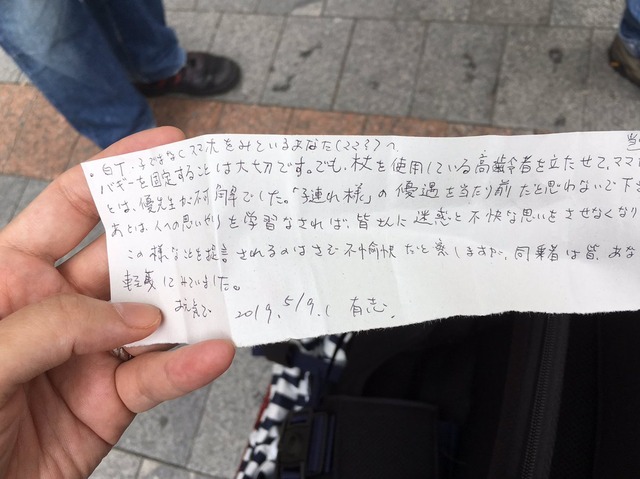 ・目下、子でまなとスマホをみているあなた(ママ?)へ 当
バギーを固定することは大切です。でも、杖を使用している高齢者を立たせて、ママ
とは、優先が不可解でした。「子連れ様」の優遇を当たり前だと思わないで下さ
あとは、人への思いやりを学習なされば、皆さんに迷惑と不快な思いをさせなくなり
この様なことを提言されるのはさぞ不愉快だと察しますが、同乗者は皆、あな
軽蔑していました。
お元気で 2019. 5/9.( 有志.